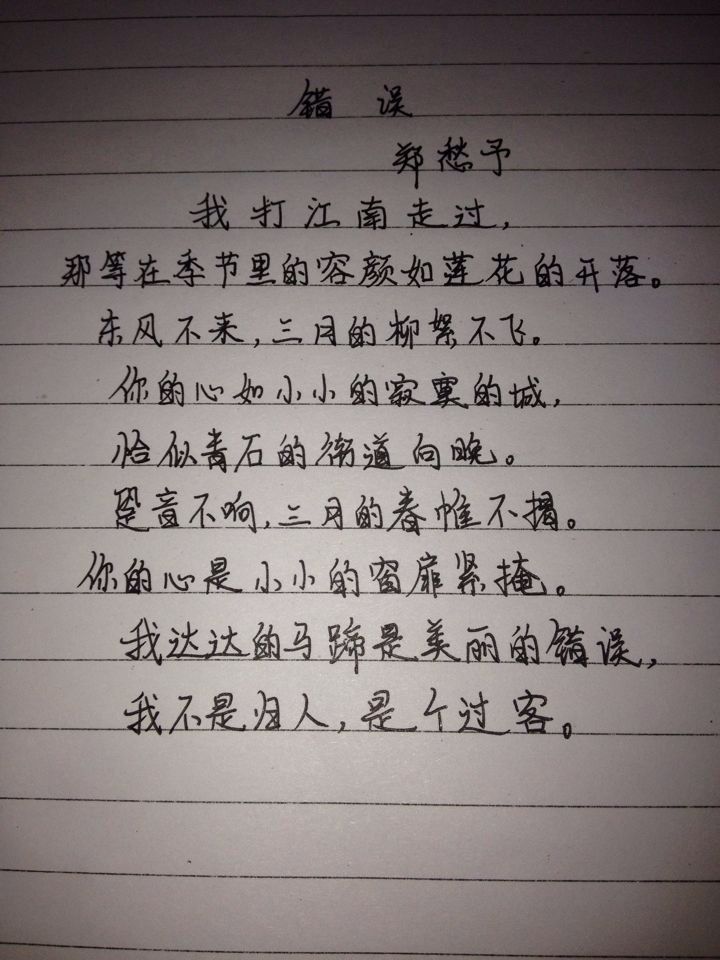 错 误
郑愁予
我打江南走过,
那等在季节里的容颜如莲花的开落。
东风不来,三月的柳絮不飞。
你的心如小小的寂寞的城,
恰似青石的街道向晚。
跫音不响,三月的春帷不揭。
你的心是小小的窗扉紧掩。
我达达的马蹄是美丽的错误,
我不是归人,是个过客。